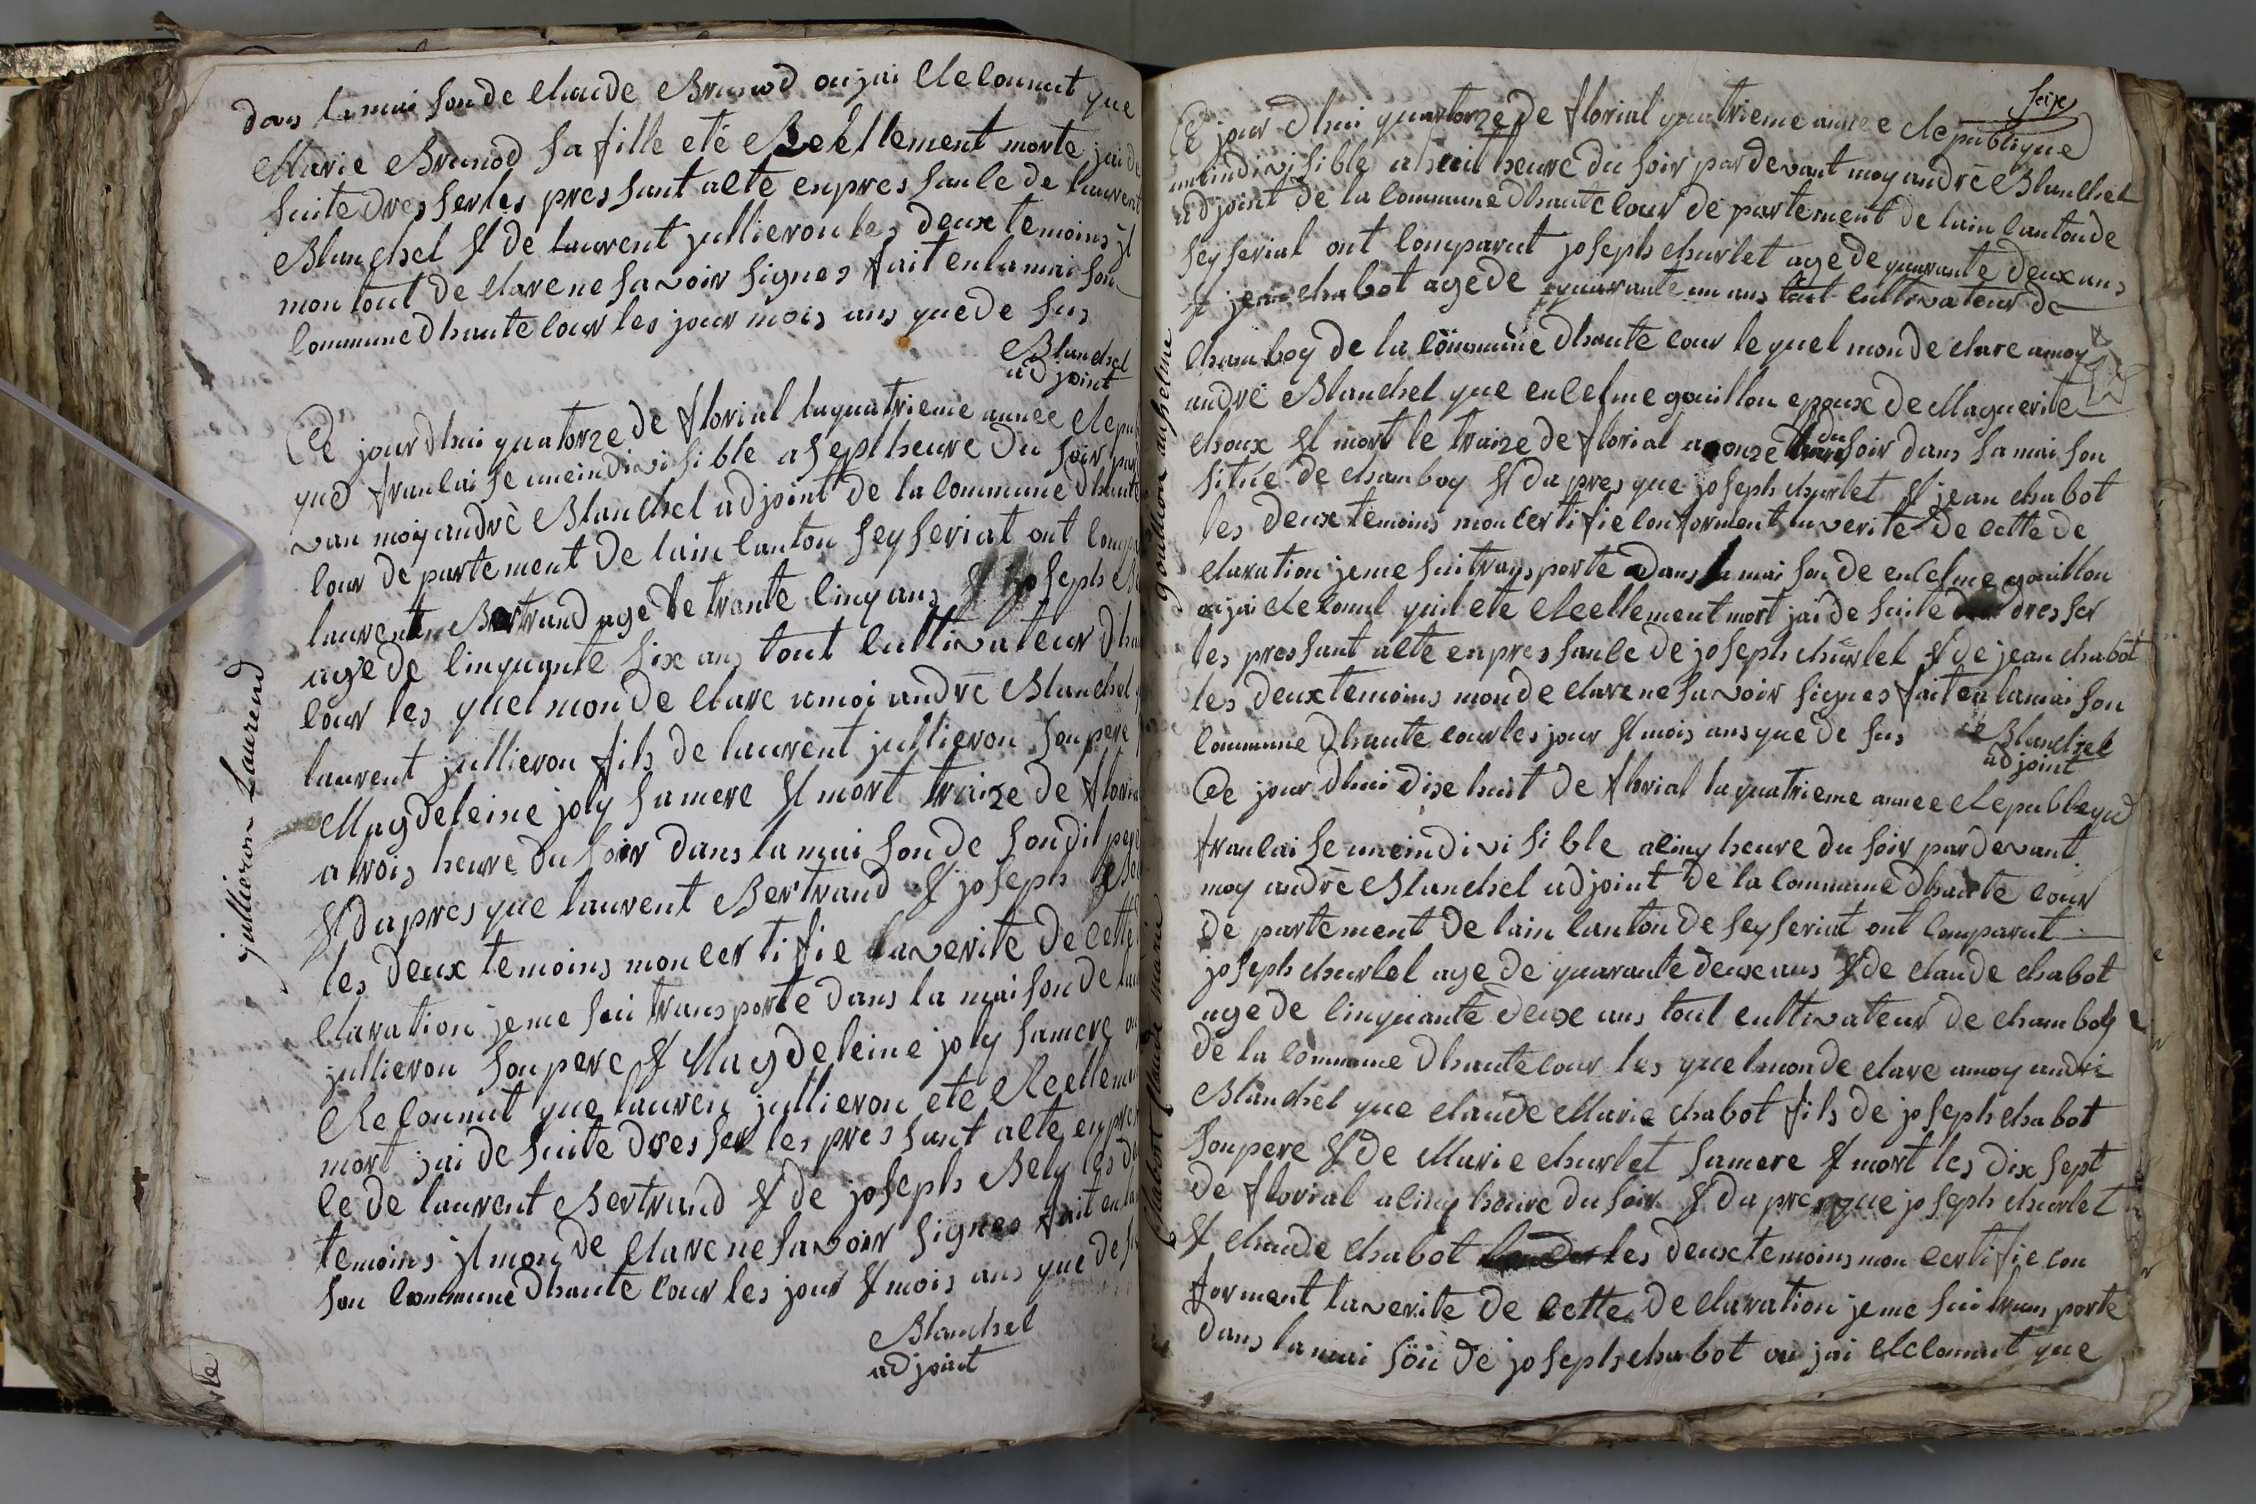 dans la mai son de Claude Brunod ou jai Reconnut que
Marie Brunod sa fille eté Reellement morte jai de
suite dresser les pressant acte en pressance de laurent
Blanchet & de laurent jullieron les deux temoins jl
mon tout de clare ne savoir signes fait en la mai son
commune dhaute cour les jour mois ans que de sus
Blanchet
adjoint
Ce jour dhui quatorze de florial la quatrieme année Repub
que francaise une indivisible a sept heure du soir par
van moy andrè Blanchet adjoint de la commune dhaute
cour departement de lain canton seyseriat ont compa
laurent Bertrand age de trante cinq ans & joseph Be
age de cinquante six ans tout cultivateur dhau
cour les quel mon de clare a moi andrè Blanchet
laurent jullieron fils de laurent jullieron son pere
Magdeleine joly sa mere & mort traize de floria
a trois heure du soir dans la mai son de son dit pere
& da pres que laurent Bertrand & joseph Be
les deux temoins mon certifie la verite de cette
claration je me sui transporte dans la maison de lau
jullieron son pere & Magdeleine joly sa mere ou
Reconnut que lauren jullieron ete Reelleme
mort jai de suite dresser les pressant acte en pres
ce de laurent Bertrand & de joseph Bely les de
temoins jl mon de clare ne savoir signes fait en la
son commune dhaute cour les jour & mois ans que de su
Blanchet
adjoint
jullieron Laurend
seize
Ce jour dhui quatorze de florial quatrieme annee Republique
une indivisible a huit heure du soir par devant moy andrè Blanchet
adjoint de la commune dhaute cour departement de lain canton de
seyseriat ont comparut joseph churlet age de quarante deux ans
& jean chabot age de quarante un ans tout cultivateur de
chamboy de la commune dhaute cour le quel mon de clare a moy
andrè Blanchet que encelme gouillon epoux de Maguerite
choux & mort le traize de florial a onze heure du soir dans sa mai son
situe de chamboy & da pres que joseph churlet & jean chabot
les deux temoins mon certifie conforment la verite de cette de
claration je me sui transporte dans la mai son de encelme gouillon
ou jai Reconut quil ete Reellement mort jai de suite dresser
les pressant acte en pressance de joseph churlet & de jean chabot
les deux temoins mon de clare ne savoir signes fait en la mai son
commune dhaute cour les jour & mois ans que de sus
Blanchet
adjoint
Ce jour dhui dixe huit de florial la quatrieme annee Republique
francaise une indivisible a cinq heure du soir par devant
moy andrè Blanchet adjoint de la commune dhaute cour
departement de lain canton de seyseriat ont comparut
joseph churlet age de quarante deuxe ans & de claude chabot
age de cinquante deuxe ans tout cultivateur de chamboy
de la commune dhaute cour les quel mon de clare a moy andrè
Blanchet que claude Marie chabot fils de joseph chabot
son pere & de Marie churlet sa mere & mort les dix sept
de florial a cinq heure du soir & da pres que joseph churlet
& claude chabot les deux temoins mon certifie con
forment la verite de cette de claration je me sui trans porte
dans la mai son de joseph chabot ou jai Reconnut que
gouillon anselme
Chabot claude marie